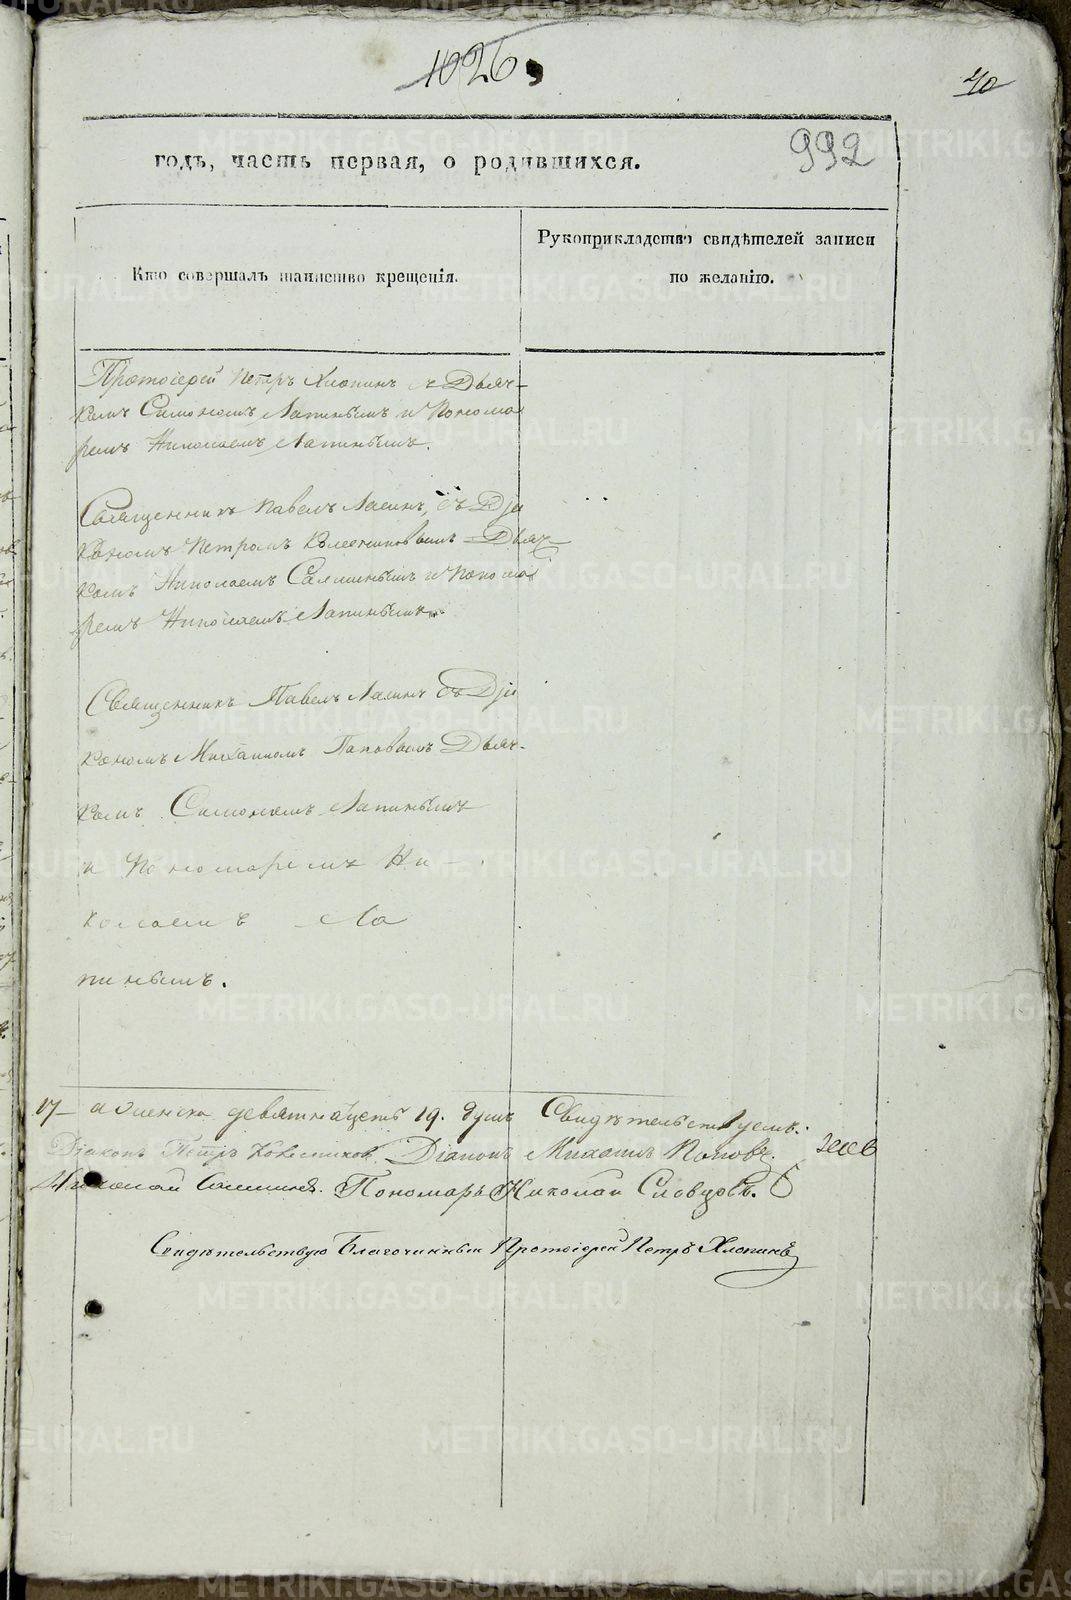 1026
40
992
годъ, часть первая, о родившихся.
Кто совершалъ таинство крещенія.
Рукоприкладство свидѣтелей записи
по желанію.
Протоіерей Петръ Хлопинъ съ Дьяч-
комъ Симономъ Лапинымъ и Понома
ремъ Николаемъ Лапинымъ.
Священникъ Павелъ Лясинъ, съ Дja
кономъ Петромъ Колесниковымъ Дьяч
комъ Николаемъ Салминымъ и Понома
ремъ Николаемъ Лапинымъ.
Священникъ Павелъ Лясинъ съ Дja
кономъ Михаиломъ Поповымъ Дьяч-
комъ Симономъ Лапинымъ
и Пономаремъ Ни-
колаемъ Ла
пинымъ.
17- а женска девятнацеть 19. душъ Свидѣтельствуемъ.
Діаконъ Петръ Колесниковъ. Діаконъ Михаилъ Поповъ.
Николай Салминъ. Пономарь Николай Словцовъ.
Свидѣтельствую Благочинный Протоіерей Петръ Хлопинъ
METRIKI.GASO-URAL.RU